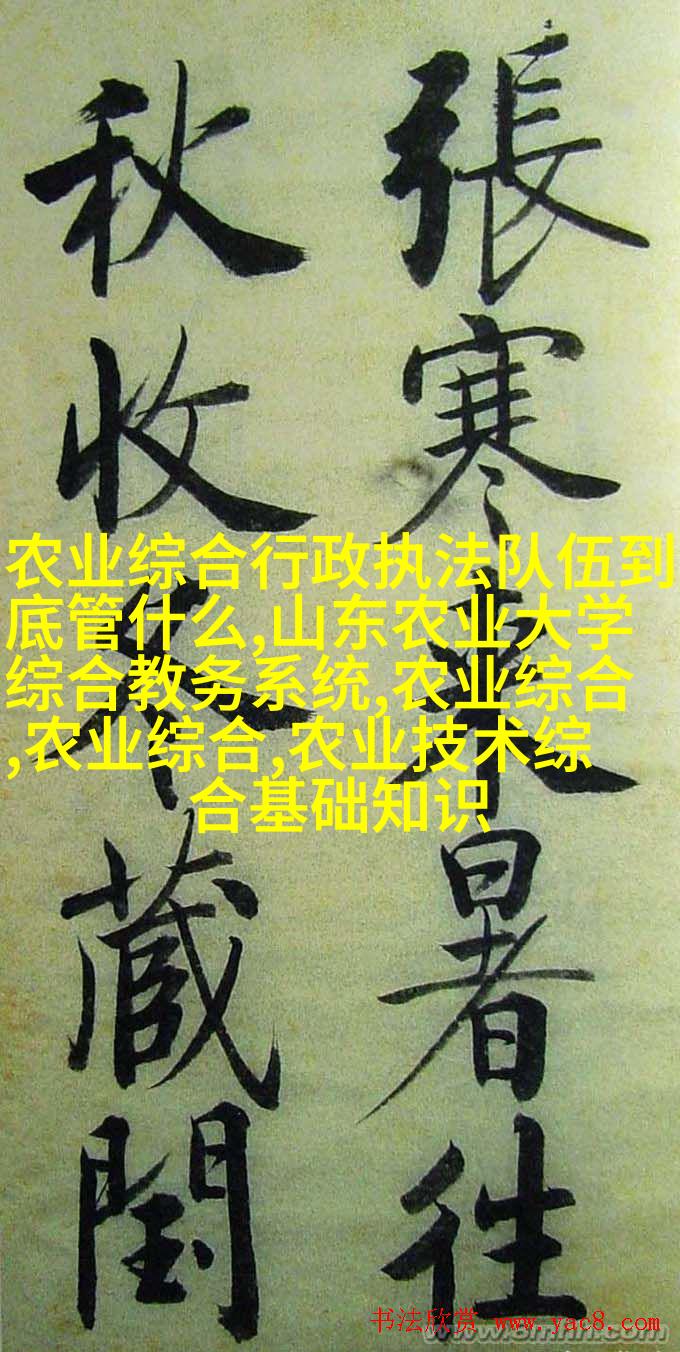 張寒來暑往
秋收冬藏閏
农业综合行政执法队伍到
底管什么,山东农业大学
综合教务系统,农业综合
,农业综合,农业技术综
合基础知识
书法欣赏 www.yac8.com